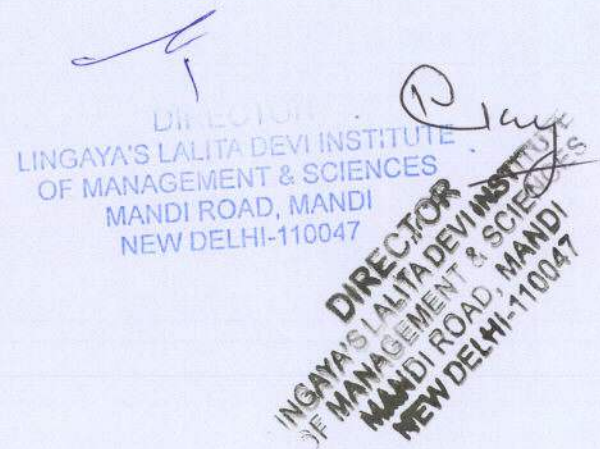 DIRECTOR
LINGAYA'S LALITA DEVI INSTITUTE
OF MANAGEMENT & SCIENCES
MANDI ROAD, MANDI
NEW DELHI-110047
DIRECTOR
INGAYA'S LALITA DEVI INSTITUTE
OF MANAGEMENT & SCIENCES
MANDI ROAD, MANDI
NEW DELHI-110047